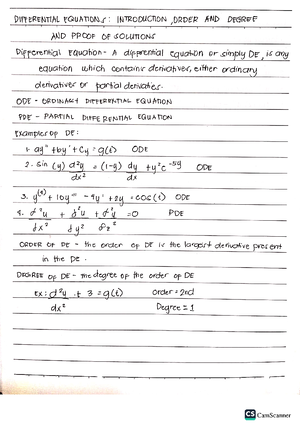 DIFFERENTIAL EQUATIONS: INTRODUCTION, ORDER AND DEGREE
AND PROOF OF SOLUTIONS
Differential Equation - A differential equation or simply DE, is any
equation which contains derivatives, either ordinary
derivatives or partial derivatives.
ODE - ORDINARY DIFFERENTIAL EQUATION
PDE - PARTIAL DIFFERENTIAL EQUATION
Examples of DE:
1. ay" + by' + cy = g(t) ODE
2. sin (y) d²y/dx² = (1-y) dy/dx + y²e^-5y ODE
3. y⁽⁴⁾ + 10y''' - 4y' + 2y = cos(t) ODE
4. ∂²u/∂x² + ∂²u/∂y² + ∂²u/∂z² = 0 PDE
ORDER OF DE - the order of DE is the largest derivative present
in the DE.
DEGREE OF DE - the degree of the order of DE
ex: d²y/dx² + 3 = g(t) Order = 2nd
Degree = 1
CS CamScanner